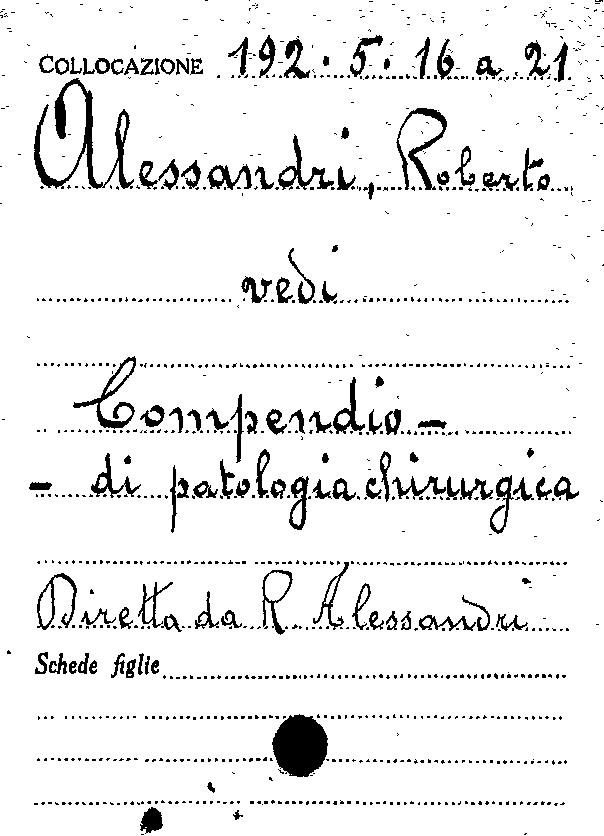 COLLOCAZIONE 192. 5. 16 a 21
Alessandri, Roberto
vedi
Compendio -
- di patologia chirurgica
Diretta da R. Alessandri
Schede figlie